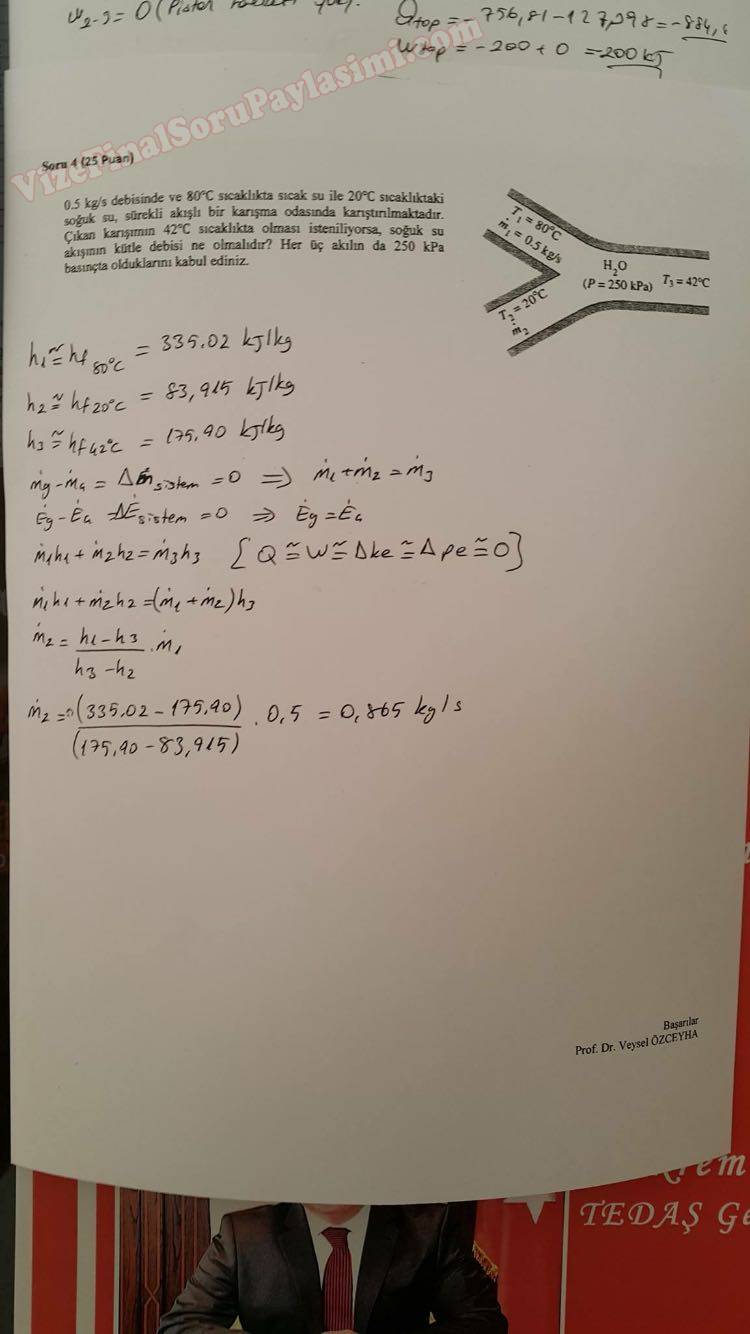 w₂₋₃ = 0 (Piston
Qtop = -756,81-127,798 = -884,6
Wtop = -200 + 0 = -200 kJ
VizeFinalSoruPaylasimi.com
Soru 4 (25 Puan)
0.5 kg/s debisinde ve 80°C sıcaklıkta sıcak su ile 20°C sıcaklıktaki
soğuk su, sürekli akışlı bir karışma odasında karıştırılmaktadır.
Çıkan karışımın 42°C sıcaklıkta olması isteniliyorsa, soğuk su
akışının kütle debisi ne olmalıdır? Her üç akılın da 250 kPa
basınçta olduklarını kabul ediniz.
T₁ = 80°C
ṁ₁ = 0.5 kg/s
H₂O
(P = 250 kPa)
T₃ = 42°C
T₂ = 20°C
ṁ₂
h₁ ≅ hf 80°C = 335.02 kJ/kg
h₂ ≅ hf 20°C = 83,915 kJ/kg
h₃ ≅ hf 42°C = 175,90 kJ/kg
ṁg - ṁç = Δṁsistem = 0 ⇒ ṁ₁ + ṁ₂ = ṁ₃
Ėg - Ėç ΔĖsistem = 0 ⇒ Ėg = Ėç
ṁ₁h₁ + ṁ₂h₂ = ṁ₃h₃ [Q ≅ W ≅ Δke ≅ Δpe ≅ 0]
ṁ₁h₁ + ṁ₂h₂ = (ṁ₁ + ṁ₂)h₃
ṁ₂ = (h₁ - h₃)/(h₃ - h₂) . ṁ₁
ṁ₂ = (335,02 - 175,90)/(175,90 - 83,915) . 0,5 = 0,865 kg/s
Başarılar
Prof. Dr. Veysel ÖZCEYHA
rem
TEDAŞ Ge